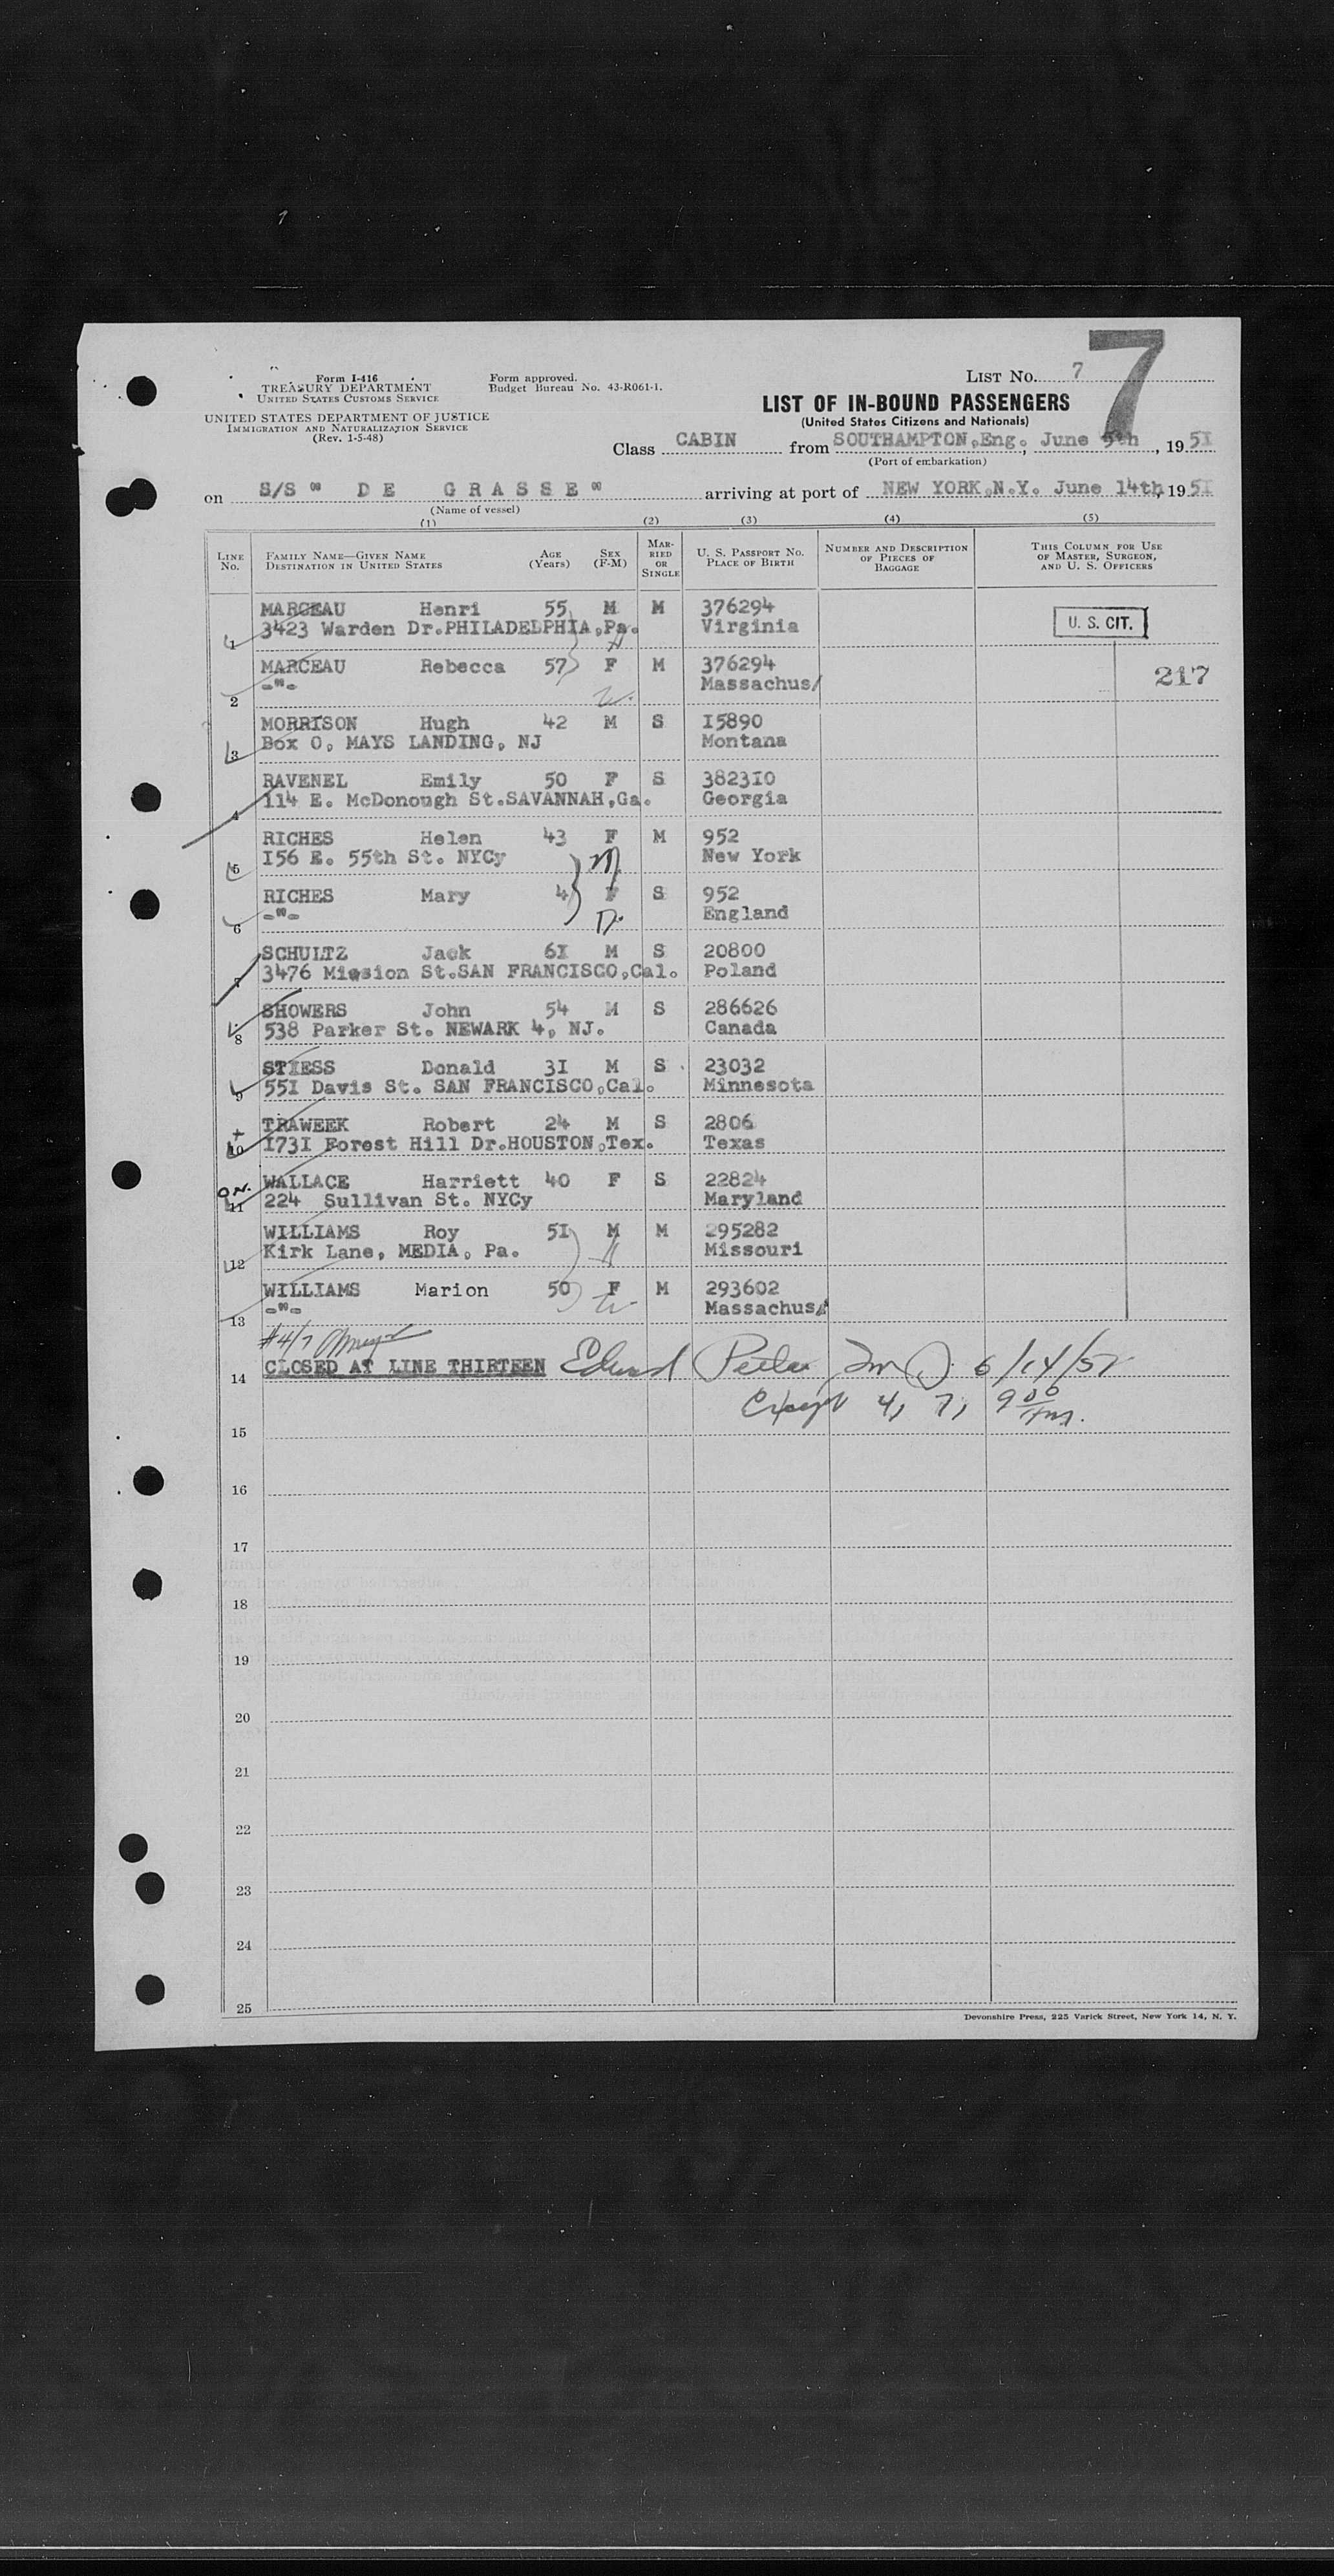 7
Form I-416
TREASURY DEPARTMENT
UNITED STATES CUSTOMS SERVICE
UNITED STATES DEPARTMENT OF JUSTICE
IMMIGRATION AND NATURALIZATION SERVICE
(Rev. 1-5-48)
Form approved.
Budget Bureau No. 43-R061-1.
LIST NO. 7
LIST OF IN-BOUND PASSENGERS
(United States Citizens and Nationals)
Class CABIN from SOUTHAMPTON,Eng., June 5th, 1951
(Port of embarkation)
on S/S " DE GRASSE " arriving at port of NEW YORK,N.Y. June 14th, 1951
(Name of vessel)
(1) (2) (3) (4) (5)
LINE NO. FAMILY NAME—GIVEN NAME DESTINATION IN UNITED STATES AGE (Years) SEX (F-M) MARRIED OR SINGLE U. S. PASSPORT NO. PLACE OF BIRTH NUMBER AND DESCRIPTION OF PIECES OF BAGGAGE THIS COLUMN FOR USE OF MASTER, SURGEON, AND U. S. OFFICERS
MARCEAU Henri 55 M M 376294
1 3423 Warden Dr.PHILADELPHIA,Pa. Virginia U. S. CIT.
H
MARCEAU Rebecca 57 F M 376294 217
2 -"- Massachus/
W.
MORRISON Hugh 42 M S I5890
3 Box O, MAYS LANDING, NJ Montana
RAVENEL Emily 50 F S 3823I0
4 114 E. McDonough St.SAVANNAH,Ga. Georgia
RICHES Helen 43 F M 952
5 I56 E. 55th St. NYCy New York
M
RICHES Mary 4 F S 952
6 -"- England
D.
SCHULTZ Jack 6I M S 20800
7 3476 Mission St.SAN FRANCISCO,Cal. Poland
SHOWERS John 54 M S 286626
8 538 Parker St. NEWARK 4, NJ. Canada
STIESS Donald 3I M S 23032
9 55I Davis St. SAN FRANCISCO,Cal. Minnesota
TRAWEEK Robert 24 M S 2806
10 I73I Forest Hill Dr.HOUSTON,Tex. Texas
WALLACE Harriett 40 F S 22824
11 224 Sullivan St. NYCy Maryland
WILLIAMS Roy 5I M M 295282
12 Kirk Lane, MEDIA, Pa. Missouri
H
WILLIAMS Marion 50 F M 293602
13 -"- Massachus/
W
#4/7
14 CLOSED AT LINE THIRTEEN Edward 6/14/51
Except 4, 7, 9
15
16
17
18
19
20
21
22
23
24
25
Devonshire Press, 225 Varick Street, New York 14, N. Y.